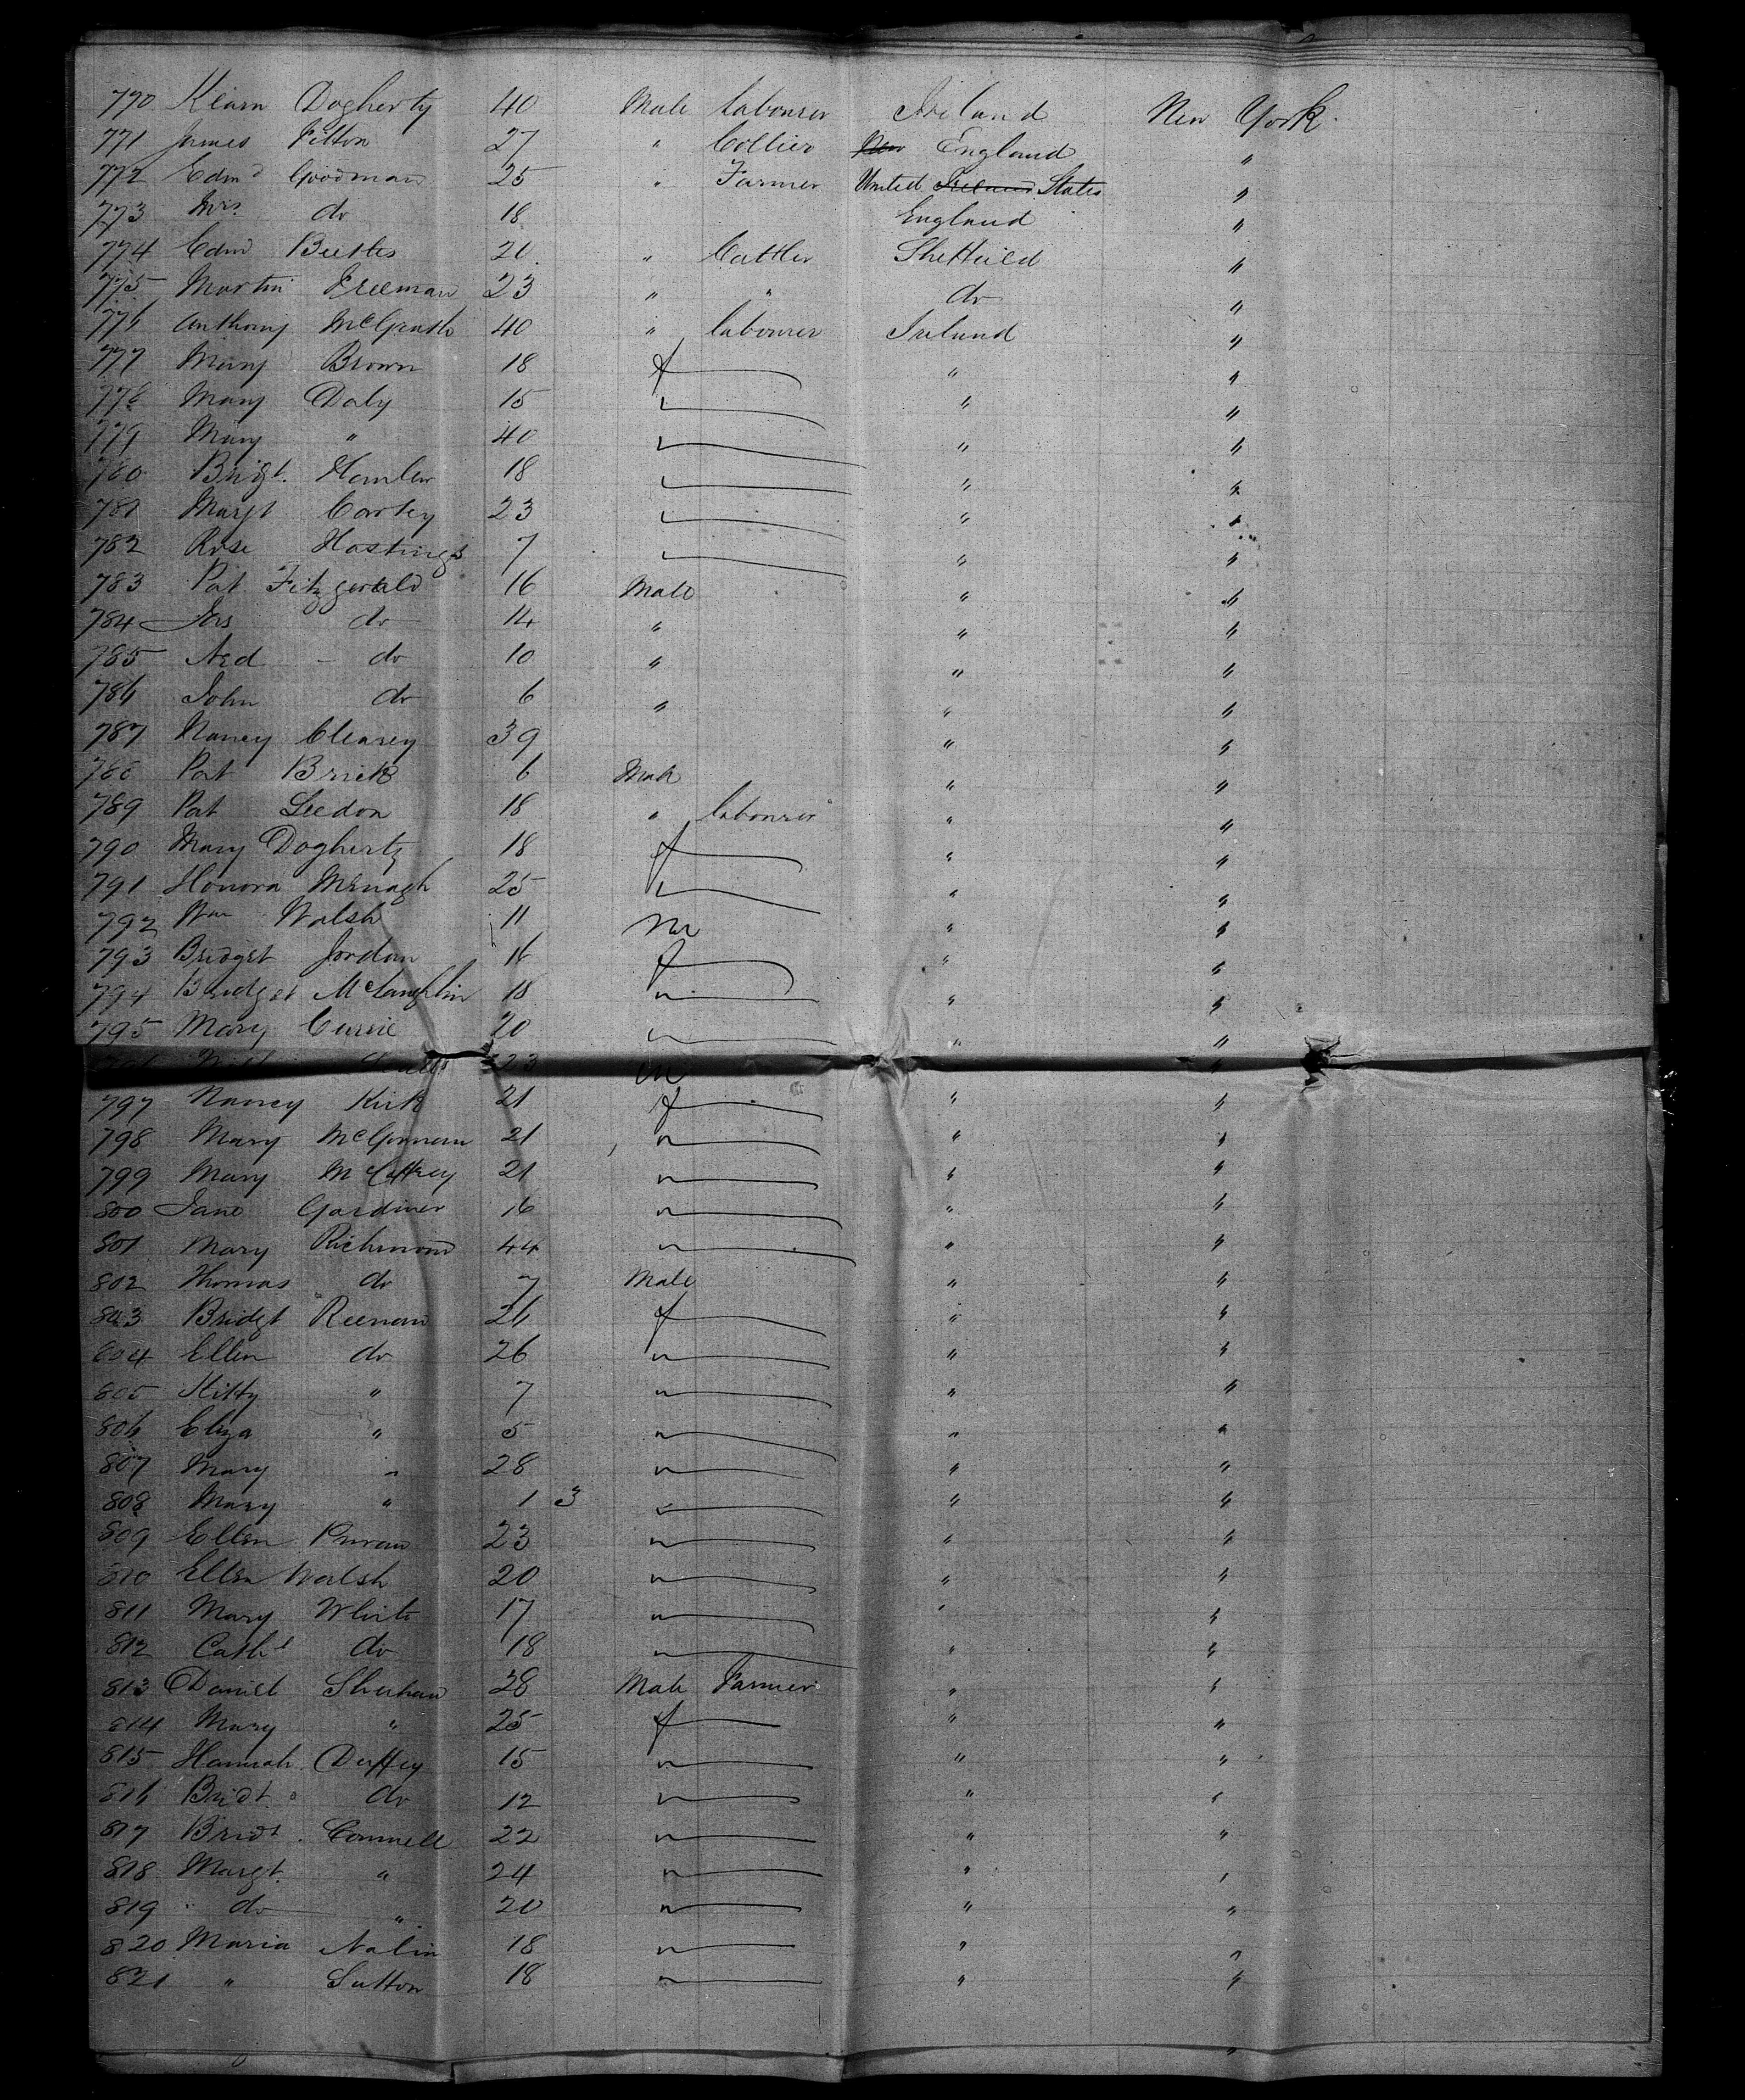 770 Kearn Dogherty 40 Male labourer Ireland New York.
771 James Fitton 27 " Collier New England "
772 Edmd Goodman 25 " Farmer United Ireland States "
773 Mrs. do 18 England "
774 Edmd Beetles 20. " Cuttler Sheffield "
775 Martin Freeman 23 " " do "
776 Anthony McGrath 40 " labourer Ireland "
777 Mary Brown 18 f " "
778 Mary Daly 15 " " "
779 Mary " 40 " " "
780 Bridgt. 18 " " "
781 Margt 23 " " "
782 Rose Hastings 7 " " "
783 Pat Fitzgerald 16 Male " "
784 Jas do 14 " " "
785 Ned - do 10 " " "
786 John do 6 " " "
787 Nancy Clearey 39 " "
788 Pat Brick 6 Male " "
789 Pat Leedon 18 " labourer " "
790 Mary Dogherty 18 f " "
791 Honora 25 " " "
792 Wm Walsh 11 M " "
793 Bridget Jordan 16 f " "
794 Bridget McLaughlin 18 " " "
795 Mary Currie 20 " " "
23 M "
797 Nancy Kirk 21 f " "
798 Mary 21 " " "
799 Mary McCaffrey 21 " " "
800 Jane Gardiner 16 " " "
801 Mary Richmond 44 " " "
802 Thomas do 7 Male " "
803 Bridgt Reenan 26 f " "
804 Ellen do 26 " " "
805 Kitty " 7 " " "
806 Eliza " 5 " " "
807 Mary " 28 " " "
808 Mary " 1 3 " " "
809 Ellen 23 " " "
810 Ellen Walsh 20 " " "
811 Mary White 17 " " "
812 Cathe do 18 " " "
813 Daniel Sheehan 28 Male Farmer " "
814 Mary " 25 f " "
815 Hannah Duffey 15 " " "
816 Bridt. do 12 " " "
817 Bridt. Connell 22 " " "
818 Margt. " 24 " " "
819 " do " 20 " " "
820 Maria Nalin 18 " " "
821 " Sutton 18 " " "